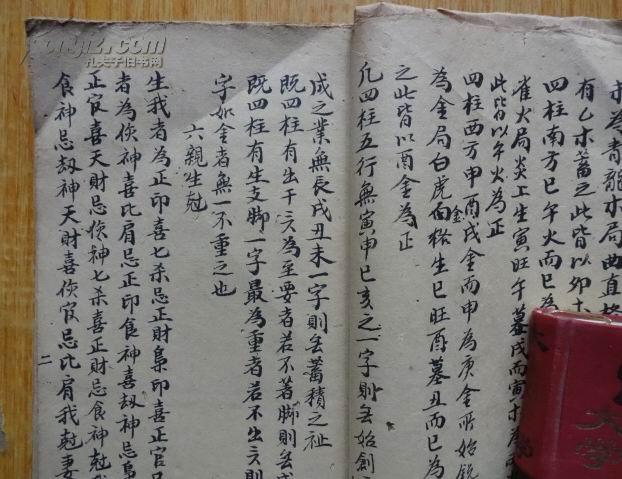 求為青龍木局曲直格
有乙木蓄之此皆以卯木
四柱南方巳午火而巳為
雀火局炎上生寅旺午墓戌而寅木為
此皆以午火為正
四柱西方申酉戌金而申為庚金所始銳
為金局白虎向金生巳旺酉墓丑而巳為
之此皆以酉金為正
凡四柱五行無寅申巳亥之一字則無始創
成之業無辰戌丑未一字則無蓄積之祉
既四柱有出干之為至要者若不著脚則無成
既四柱有生支脚一字最為重者若不出之則
字如全者無一不重之也
六親生尅
生我者為正印喜七杀忌正財梟印喜正官忌
者為伤神喜比肩忌正印食神喜劫神忌梟
正官喜天財忌伤神七杀喜正財忌食神尅我
食神忌劫神天財喜伤官忌比肩我尅妻
二
孔夫子旧书网
字